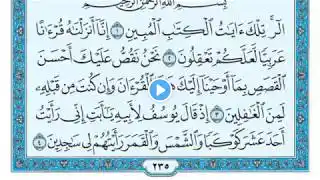 بِسْمِ اللَّهِ الرَّحْمَٰنِ الرَّحِيمِ
الٓر ۚ تِلْكَ ءَايَٰتُ ٱلْكِتَٰبِ ٱلْمُبِينِ ١ إِنَّآ أَنزَلْنَٰهُ قُرْءَٰنًا
عَرَبِيًّا لَّعَلَّكُمْ تَعْقِلُونَ ٢ نَحْنُ نَقُصُّ عَلَيْكَ أَحْسَنَ
ٱلْقَصَصِ بِمَآ أَوْحَيْنَآ إِلَيْكَ ٱلْقُرْءَانَ وَإِن كُنتَ مِن قَبْلِهِۦ
لَمِنَ ٱلْغَٰفِلِينَ ٣ إِذْ قَالَ يُوسُفُ لِأَبِيهِ يَٰٓأَبَتِ إِنِّى رَأَيْتُ
أَحَدَ عَشَرَ كَوْكَبًا وَٱلشَّمْسَ وَٱلْقَمَرَ رَأَيْتُهُمْ لِى سَٰجِدِينَ ٤
٢٣٥